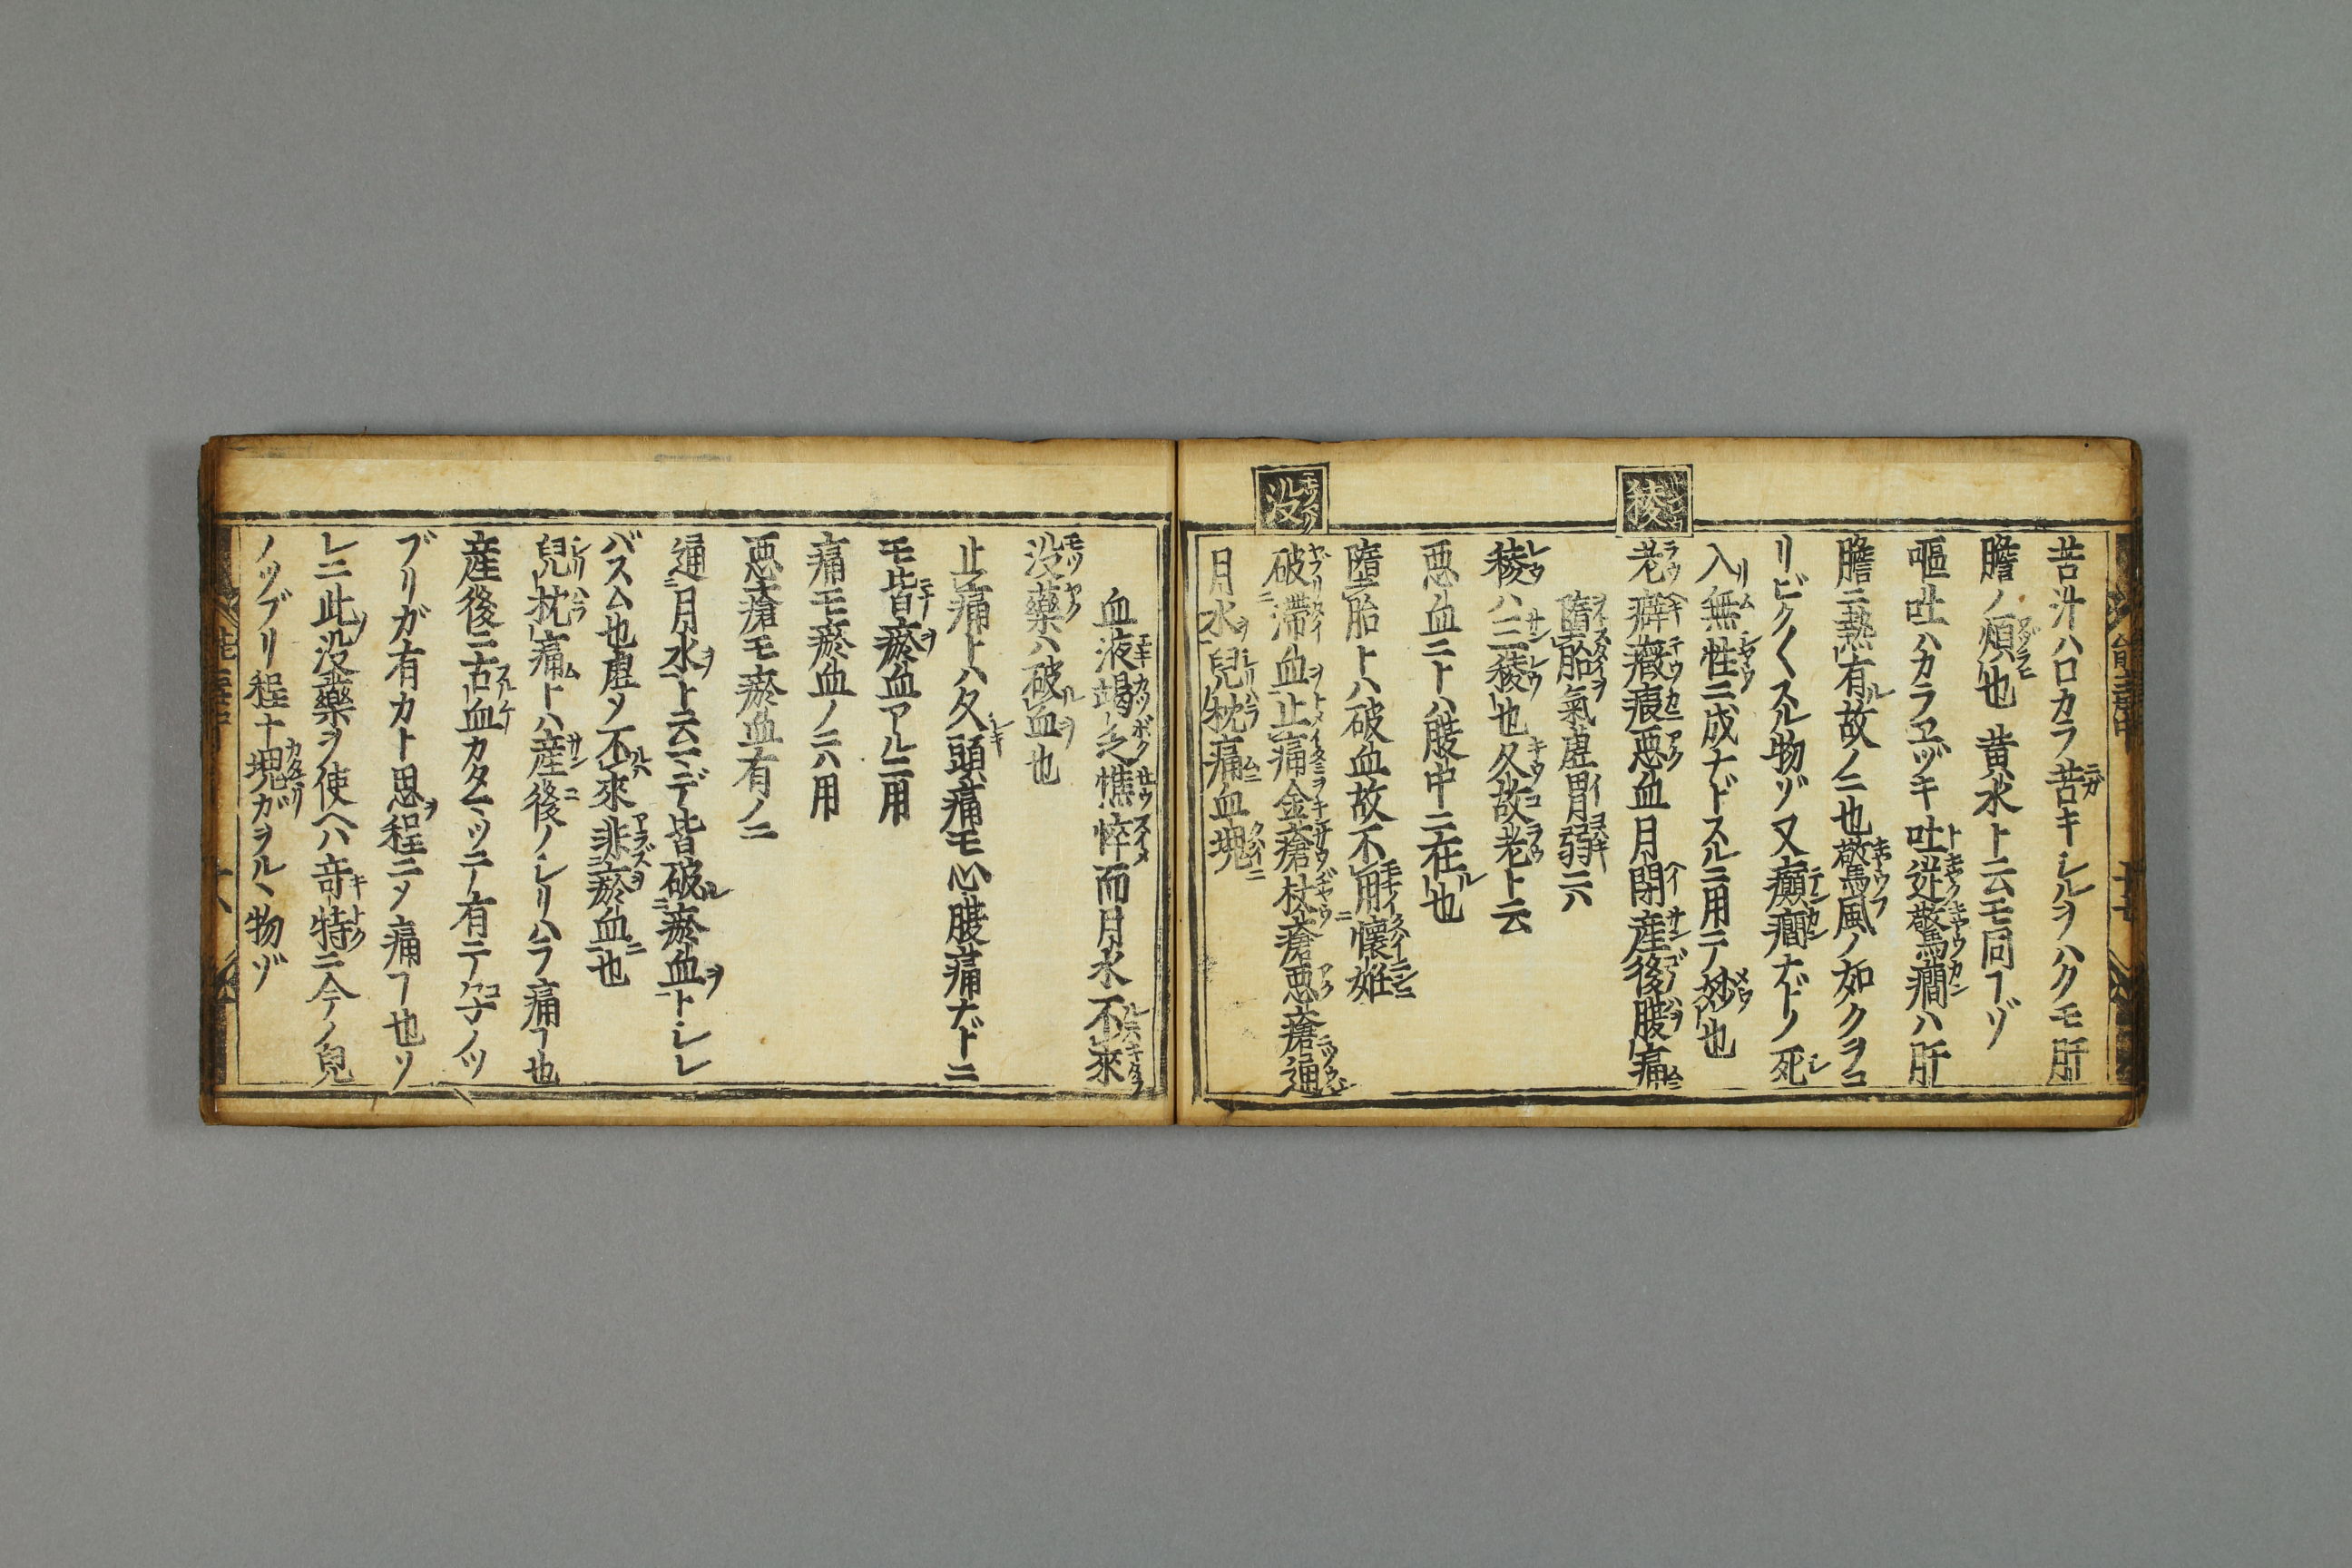 苦汁ハ口カラ苦キシルヲハクモ肝
膽ノ煩也黄水ト云モ同ヿゾ
嘔吐ハカラヱヅキ吐逆驚癎ハ肝
膽ニ熱有故ノニ也驚風ノ如クヲコ
リビク〱スル物ゾ又癲癎ナドノ死
入無性ニ成ナドスルニ用テ妙也
稜
老癖癥瘕悪血月閉産後腹痛
墮胎氣虚胃弱ニハ
稜ハ三稜也久故老ト云
悪血ニトハ腹中ニ在也
墮胎トハ破血故不用懷姙
没
破滞血止痛金瘡杖瘡悪瘡通
月水兒枕痛血塊
血液竭乏憔悴而月水不來
没藥ハ破血也
止痛トハ久頭痛モ心腹痛ナドニ
モ皆瘀血アルニ用
痛モ瘀血ノニハ用
悪瘡モ瘀血有ノニ
通月水ト云マデ皆破瘀血トシレ
バスム也虚〆不來非瘀血也
兒枕痛トハ産後ノシリハラ痛ヿ也
産後ニ古血カタマツテ有テ子ノツ
ブリガ有カト思程ニ〆痛ヿ也ソ
レニ此没藥ヲ使ヘハ竒特ニ今ノ兒
ノツブリ程ナ塊ガヲルヽ物ゾ